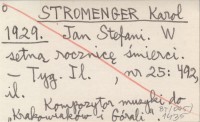 STROMENGER Karol
1929. Jan Stefani. W
setną rocznicę śmierci.
— Tyg. Il. , nr 25: 492,
il.
Kompozytor muzyki do
„Krakowiaków i Górali"